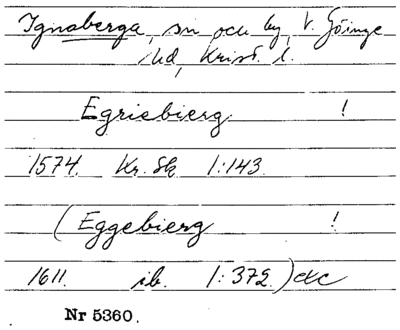 Ignaberga, sn och by, V. Göinge
hd, Krist. l.
Egriebierg !
1574. Kr. Sk 1:143.
(Eggebierg !
1611. ib. 1:372.) etc
Nr 5360.